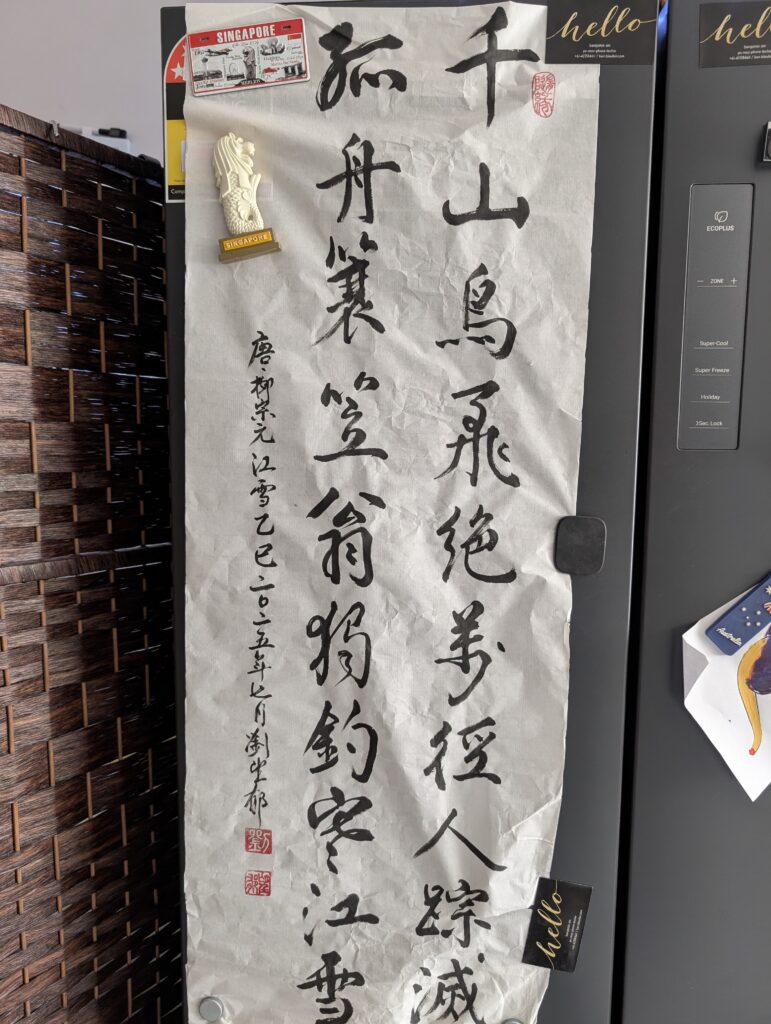 千山鳥飛絶萬徑人踪滅
孤舟簑笠翁獨釣寒江雪
唐柳宗元江雪乙巳二〇二五年七月劉郁
劉
SINGAPORE
SINGAPORE
hello
hello
ECOPLUS
− ZONE +
Super-Cool
Super Freeze
Holiday
3Sec. Lock
Australia
hello